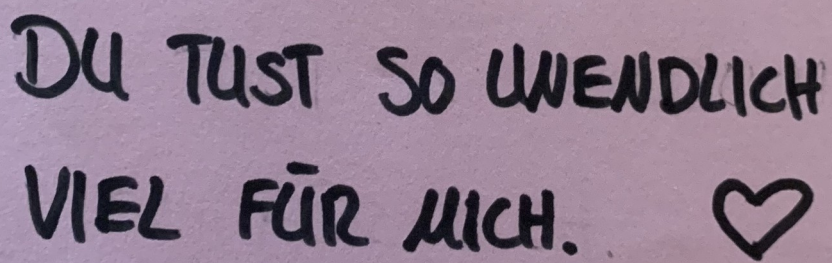 DU TUST SO UNENDLICH
VIEL FÜR MICH. ♡